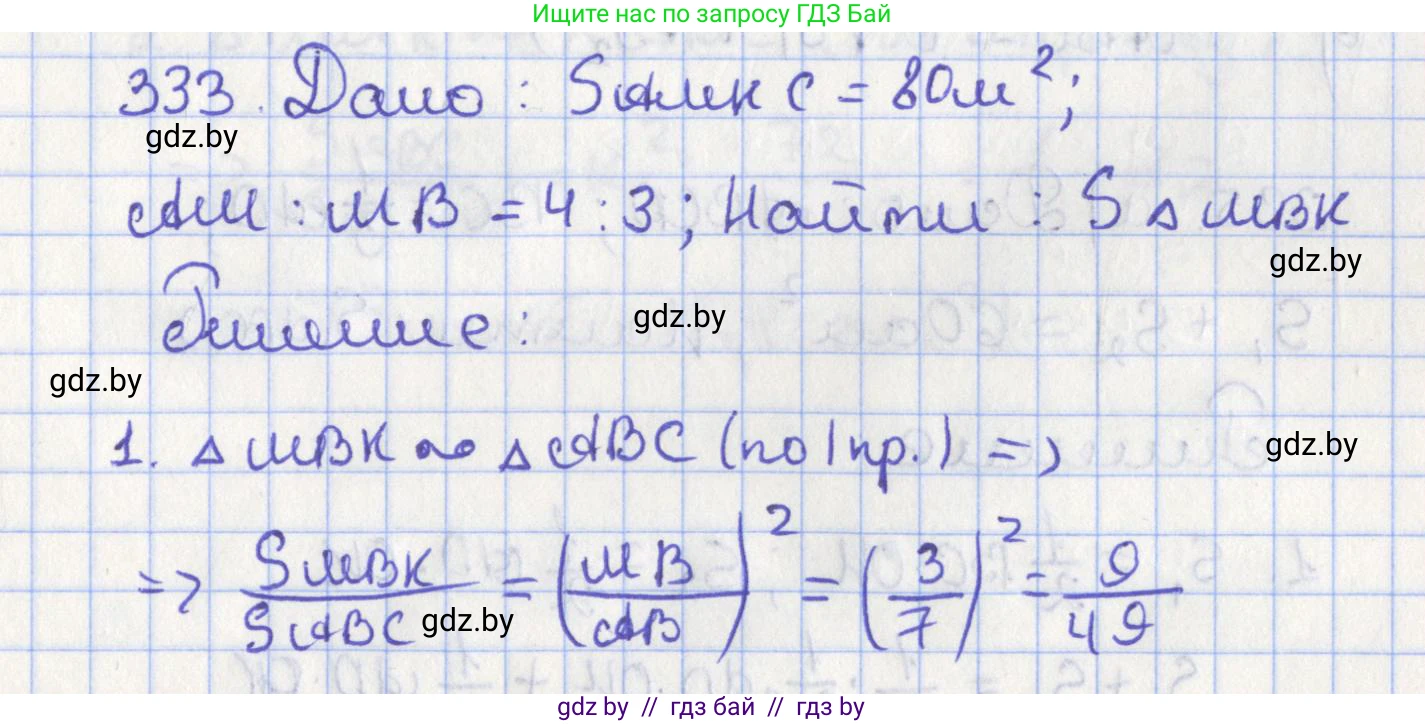 Ищите нас по запросу ГДЗ Бай
333. Дано : SAMKC = 80м²;
gdz.by
AM : MB = 4 : 3; Найти : S △ MBK
gdz.by
Решение :
gdz.by
gdz.by
1. △ MBK ∾ △ ABC (по I пр.) =>
gdz.by
=> SMBK / SABC = (MB / AB)² = (3 / 7)² = 9 / 49
gdz.by
gdz.by // гдз бай // гдз by